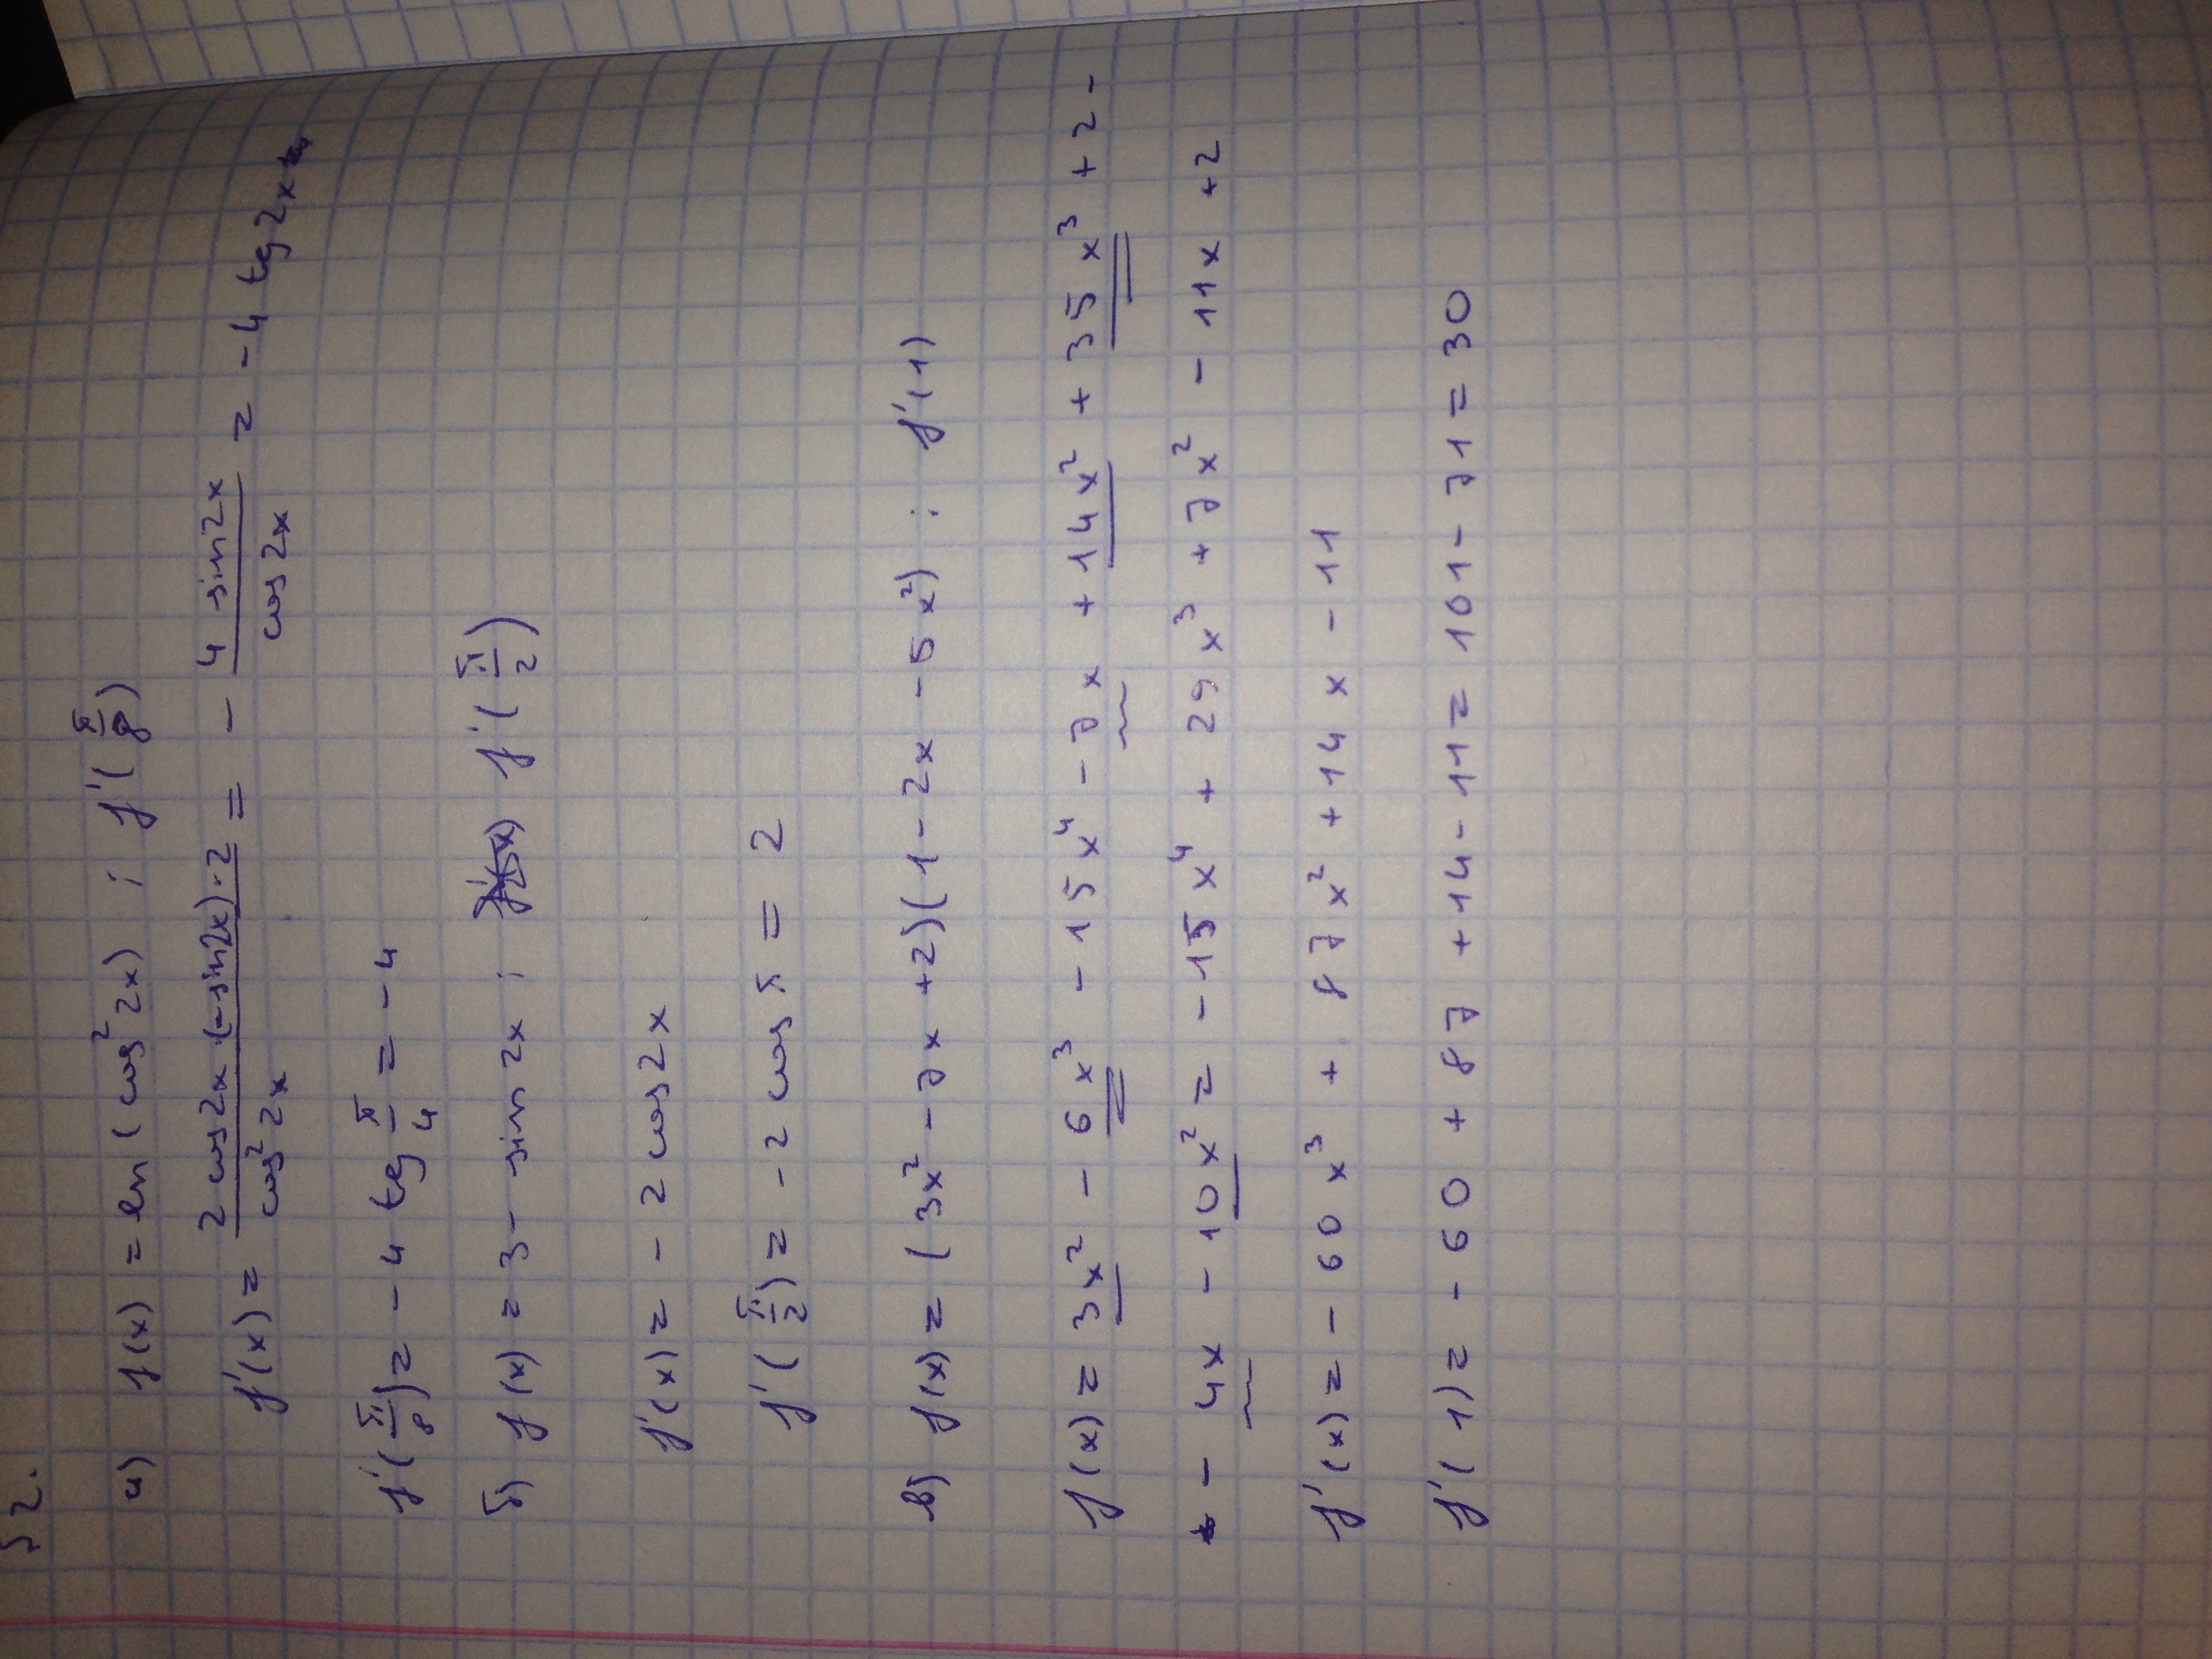 №2.
а) f(x) = ln(cos²2x) ; f'(π/8)
f'(x) = (2cos2x·(-sin2x)·2)/(cos²2x) = - (4 sin2x)/(cos2x) = - 4 tg2x
f'(π/8) = - 4 tg π/4 = - 4
б) f(x) = 3 - sin 2x ; f'(π/2)
f'(x) = - 2 cos2x
f'(π/2) = - 2 cos π = 2
в) f(x) = (3x² - 7x + 2)(1 - 2x - 5x²) ; f'(1)
f(x) = 3x² - 6x³ - 15x⁴ - 7x + 14x² + 35x³ + 2 -
- 4x - 10x² = - 15x⁴ + 29x³ + 7x² - 11x + 2
f'(x) = - 60x³ + 87x² + 14x - 11
f'(1) = - 60 + 87 + 14 - 11 = 101 - 71 = 30